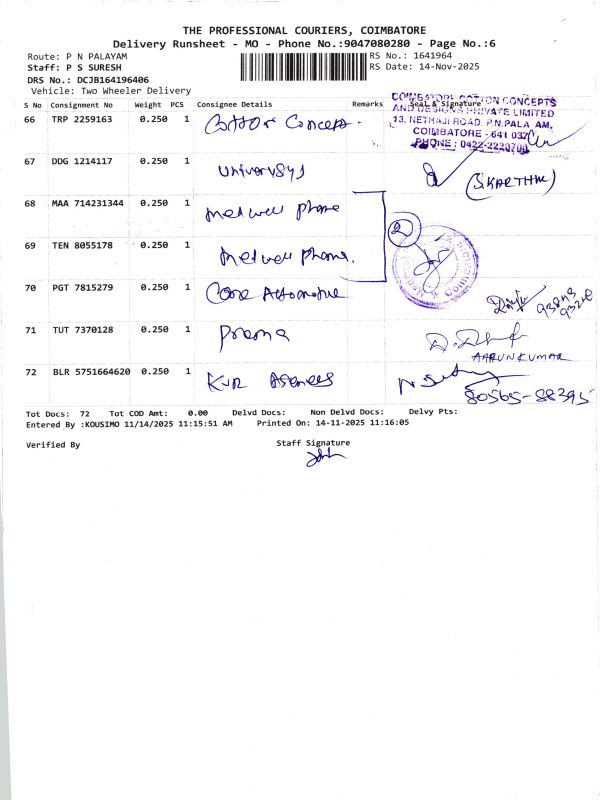 THE PROFESSIONAL COURIERS, COIMBATORE
Delivery Runsheet - MO - Phone No.:9047080280 - Page No.:6
Route: P N PALAYAM
RS No.: 1641964
Staff: P S SURESH
RS Date: 14-Nov-2025
DRS No.: DCJB164196406
Vehicle: Two Wheeler Delivery
S No Consignment No Weight PCS Consignee Details Remarks Seal & Signature
COIMBATORE COTTON CONCEPTS
AND DESIGNS PRIVATE LIMITED
13, NETHAJI ROAD, P.N.PALA AM,
COIMBATORE - 641 037
PHONE : 0422-2220700
66 TRP 2259163 0.250 1 Cotton Concept
67 DDG 1214117 0.250 1 (S.KARTHIK)
68 MAA 714231344 0.250 1 medwell phone
69 TEN 8055178 0.250 1 medwell phone. 2
70 PGT 7815279 0.250 1 Core Automotive
71 TUT 7370128 0.250 1 Prema
AARUNKUMAR
72 BLR 5751664620 0.250 1 KVR Agencies
80565-88395
Tot Docs: 72 Tot COD Amt: 0.00 Delvd Docs: Non Delvd Docs: Delvy Pts:
Entered By :KOUSIMO 11/14/2025 11:15:51 AM Printed On: 14-11-2025 11:16:05
Verified By Staff Signature